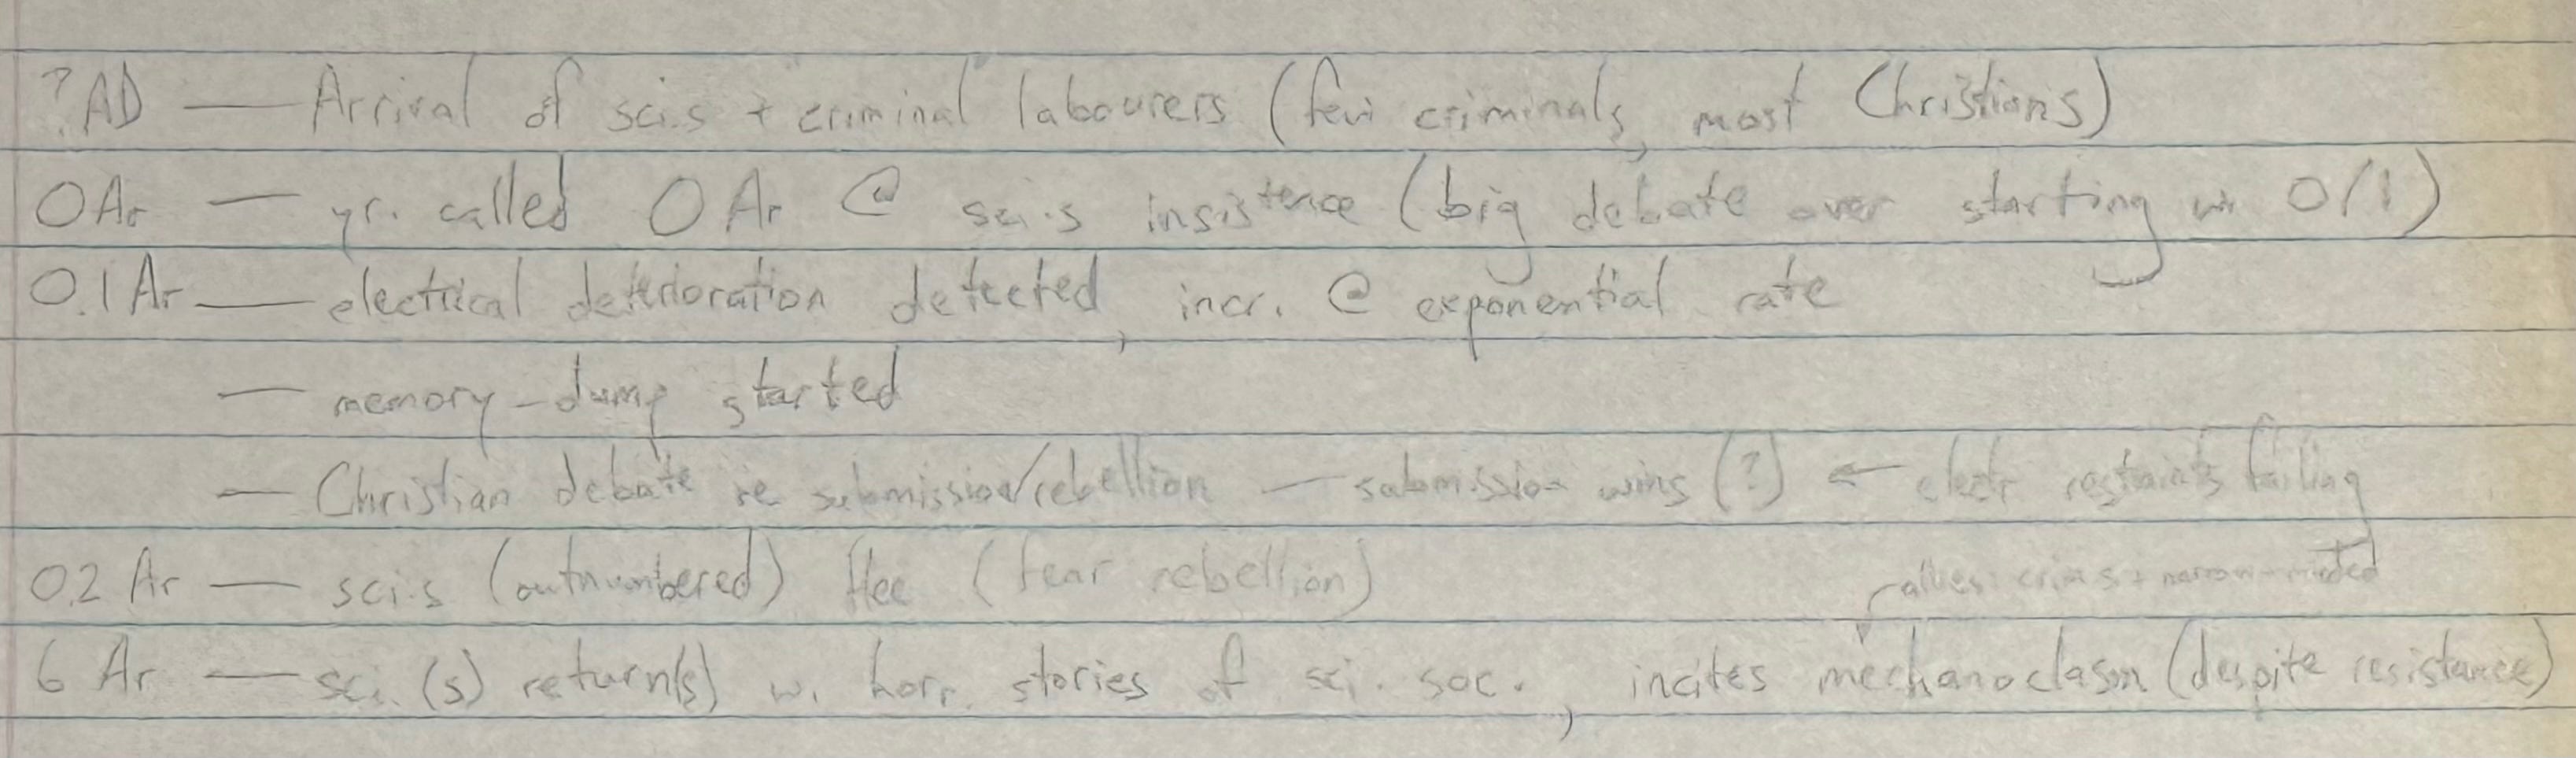 ?AD — Arrival of sci.s + criminal labourers (few criminals, most Christians)
0 Ar — yr. called 0 Ar @ sci.s insistence (big debate over starting w. 0/1)
0.1 Ar — electrical deterioration detected, incr. @ exponential rate
— memory-dump started
— Christian debate re submission/rebellion — submission wins (?) ← electr restraints failing
0.2 Ar — sci.s (outnumbered) flee (fear rebellion)
allies: crims + narrow-minded
6 Ar — sci.(s) return(s) w. horr. stories of sci. soc., incites mechanoclasm (despite resistance)